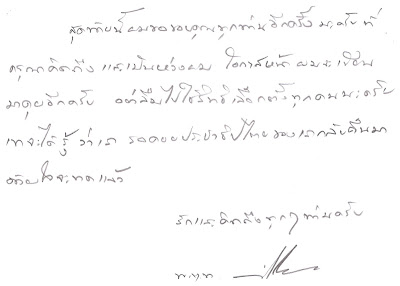 สุดท้ายนี้ ผมขอขอบคุณทุกท่านอีกครั้ง นะครับ ที่
กรุณาคิดถึง และเป็นห่วงผม โอกาสหน้า ผมจะเขียน
มาคุยอีกครับ อย่าลืมไปใช้สิทธิเลือกตั้งทุกคนนะครับ
เขาจะได้รู้ ว่าเรา รอคอยประชาธิปไตยของเรากลับคืนมา
ด้วยใจจะขาดแล้ว
รักและคิดถึงทุกๆท่านครับ